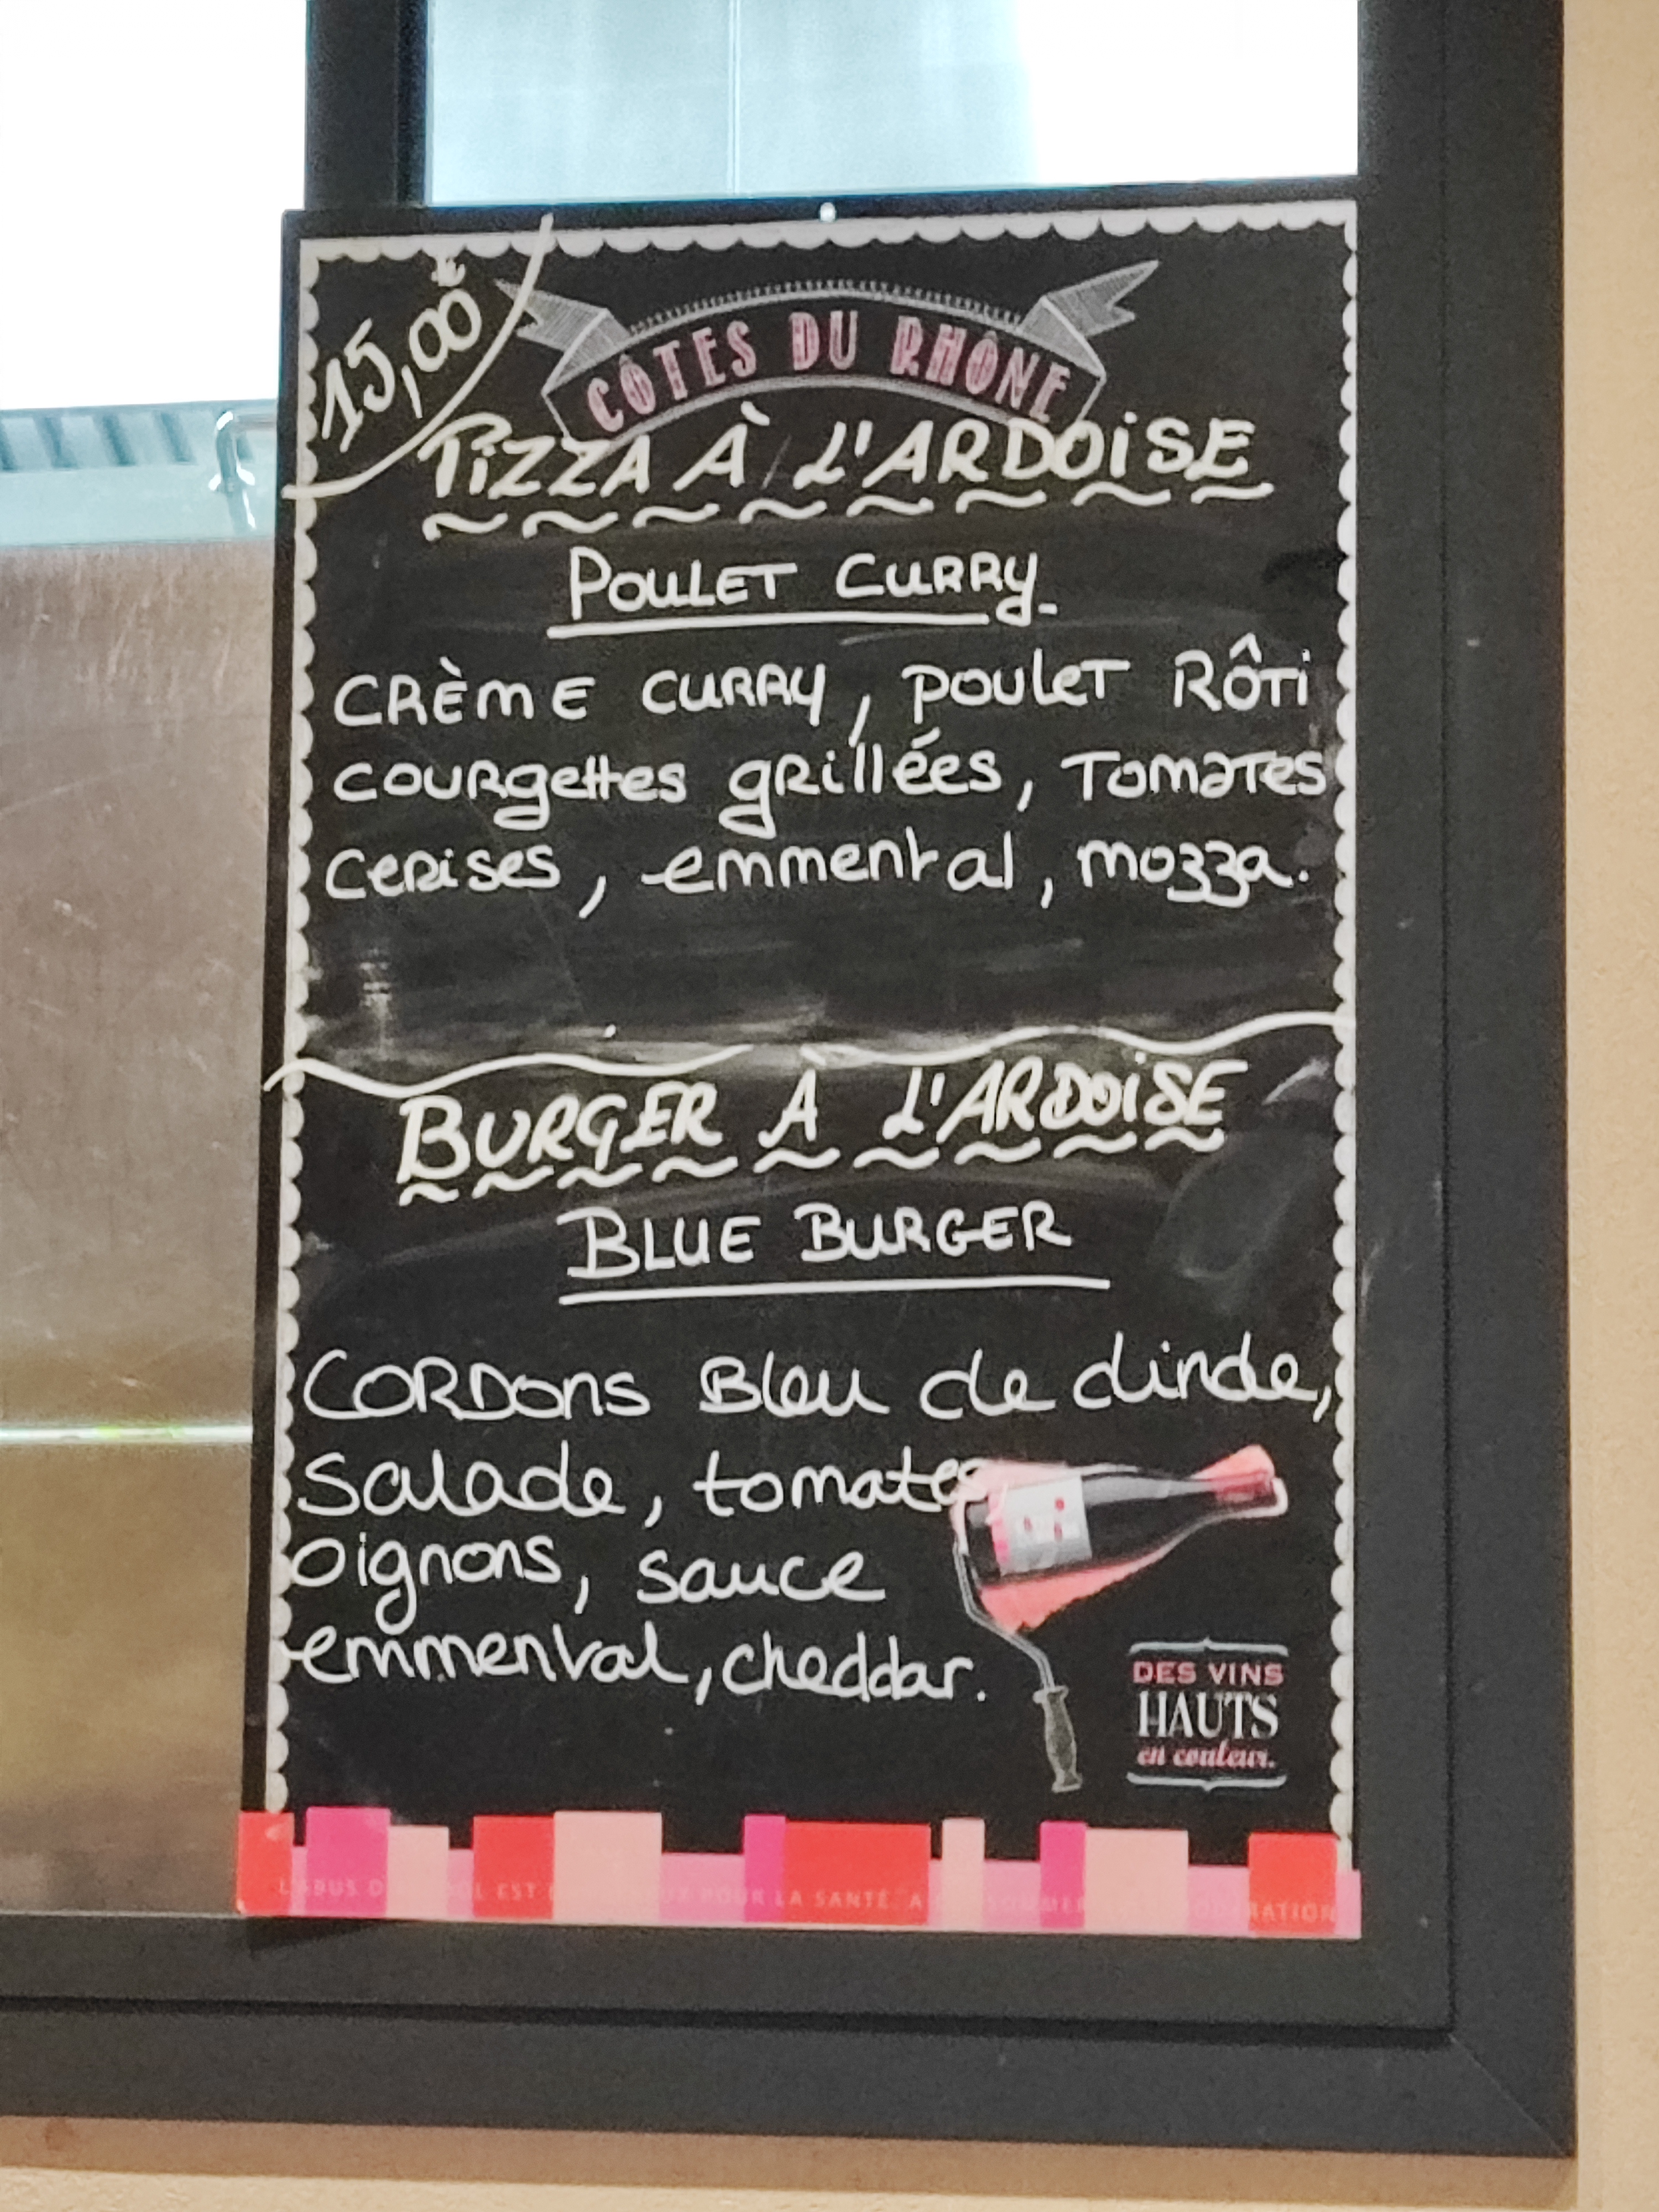 15,00€
CÔTES DU RHÔNE
PIZZA À L'ARDOISE
POULET CURRY
CRÈME CURRY, POULET RÔTI
COURGETTES GRILLÉES, TOMATES
CERISES, emmental, mozza.
BURGER À L'ARDOISE
BLUE BURGER
CORDONS Bleu de dinde,
Salade, tomates
oignons, sauce
emmental, cheddar.
DES VINS
HAUTS
en couleur.
EST POUR LA SANTÉ. A